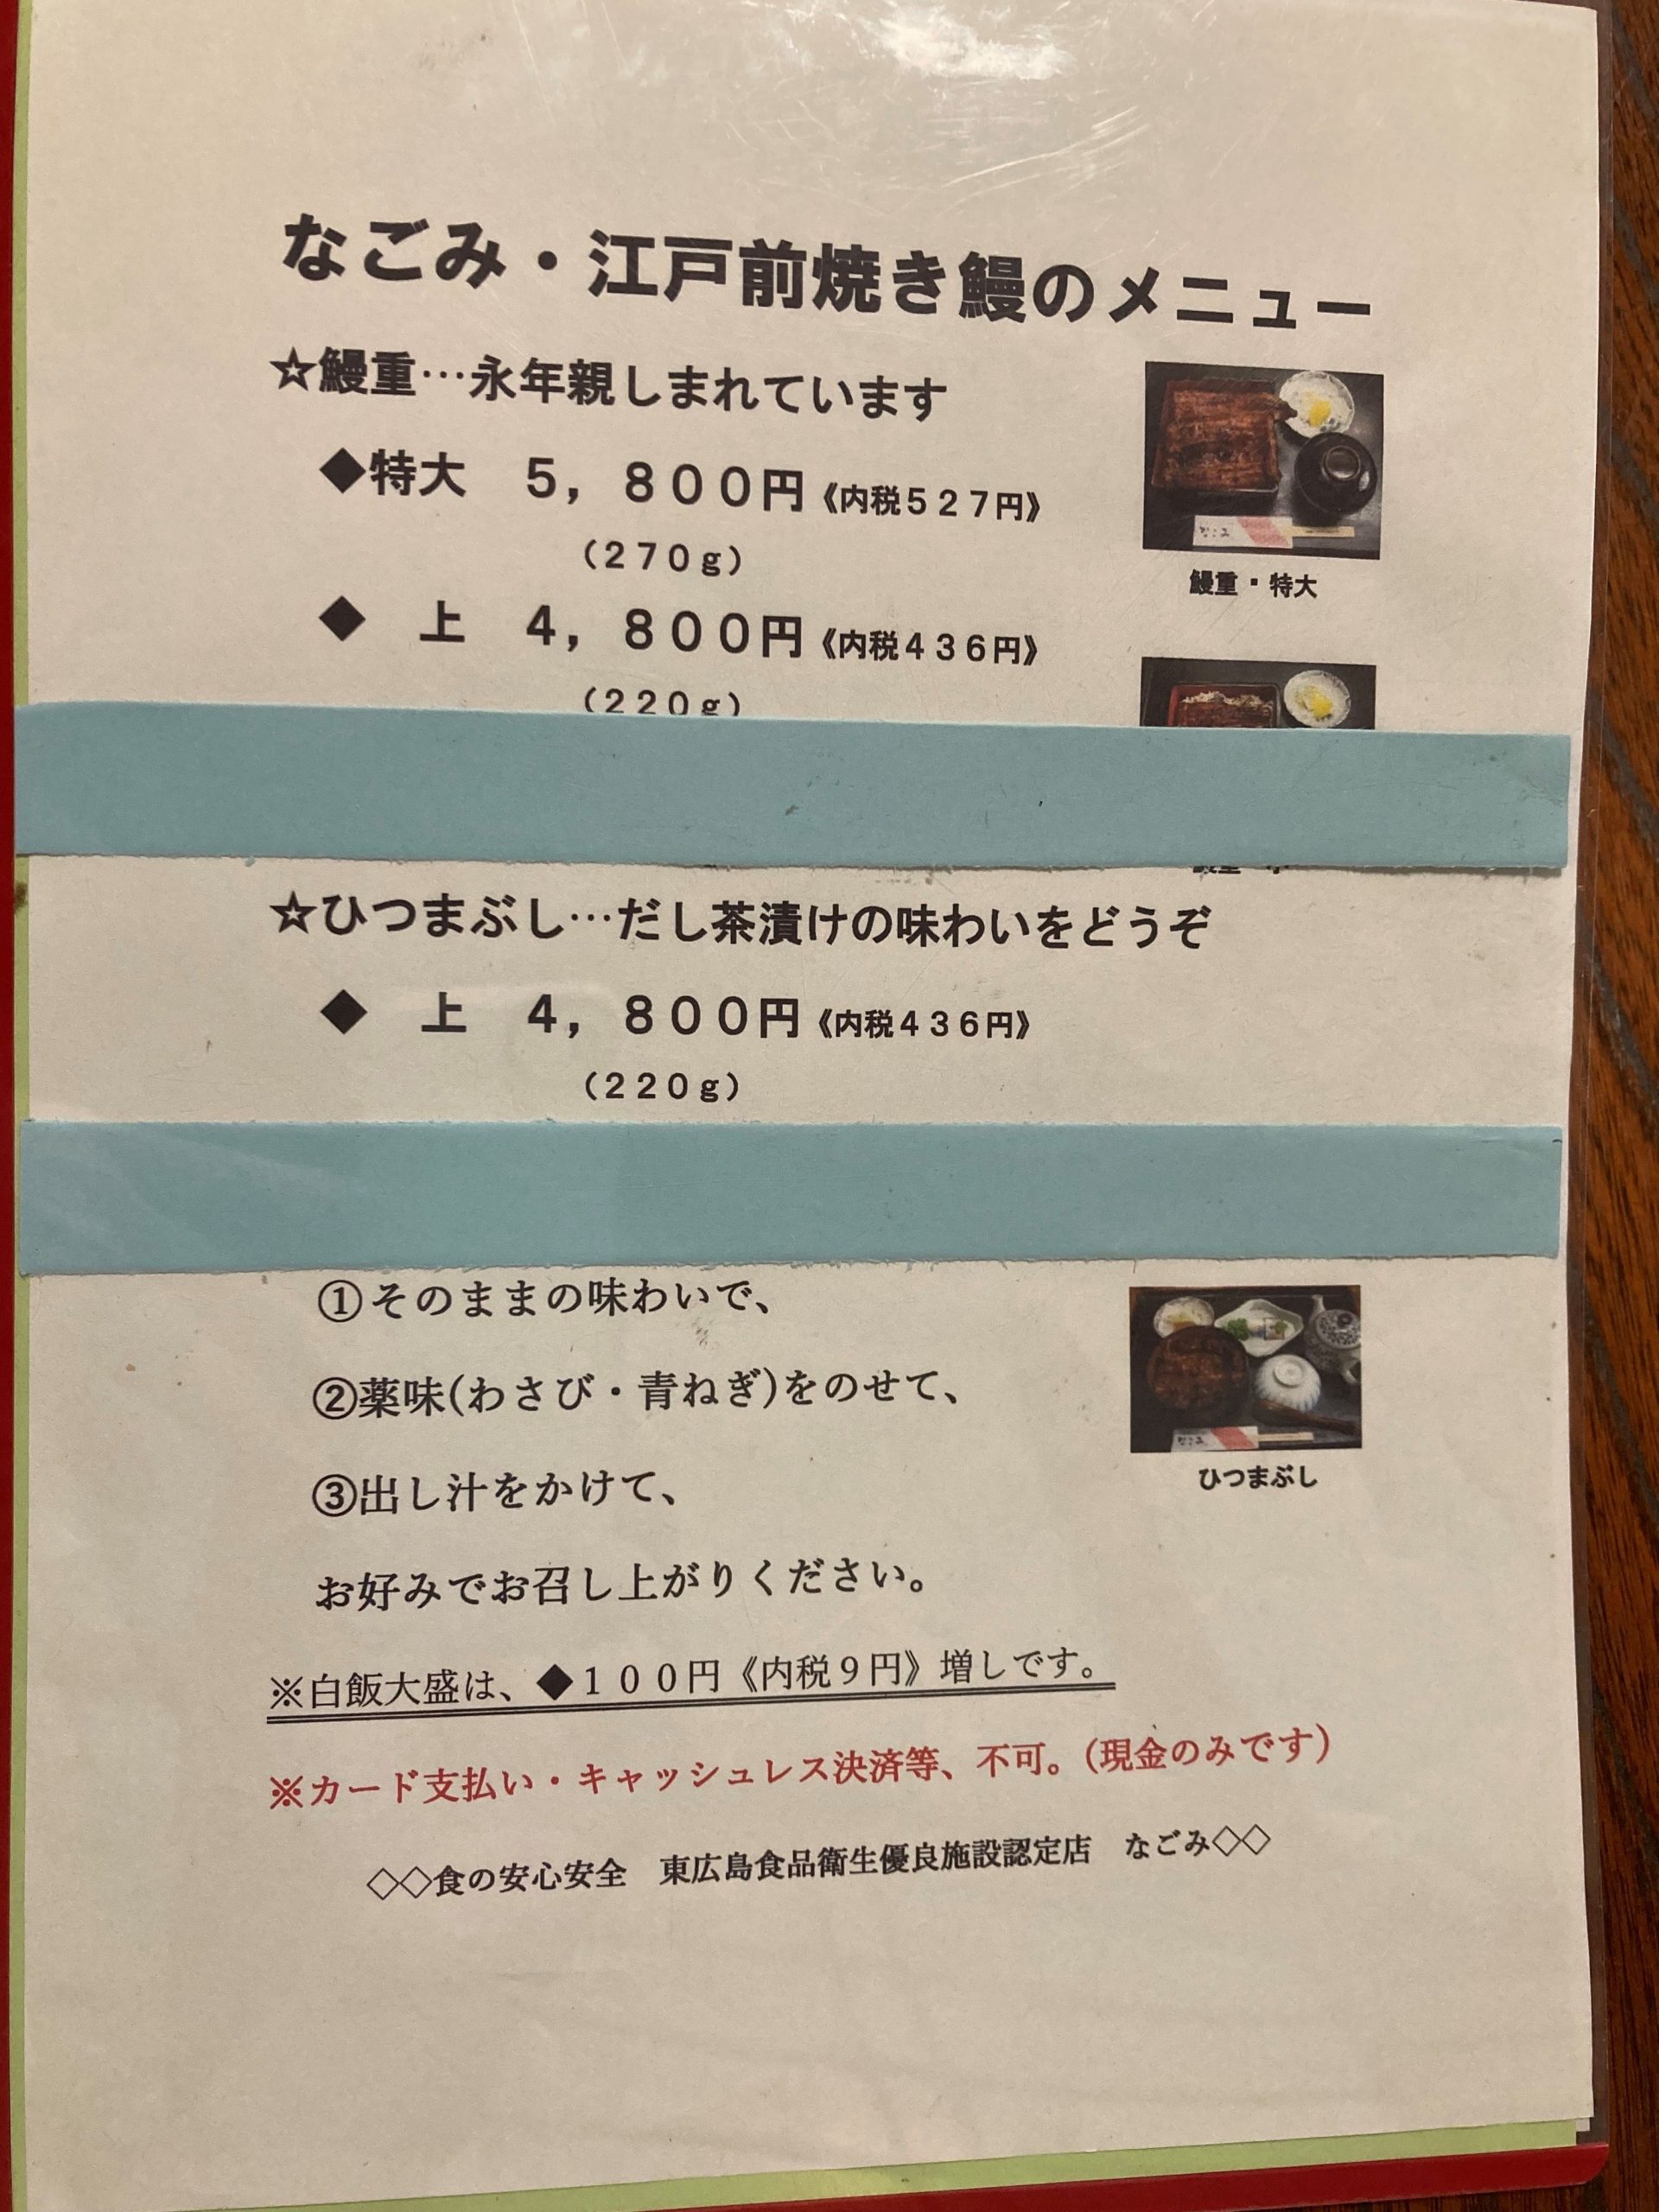 なごみ・江戸前焼き鰻のメニュー
☆鰻重…永年親しまれています
◆特大　５，８００円《内税５２７円》
（２７０ｇ）
鰻重・特大
◆　上　４，８００円《内税４３６円》
（２２０ｇ）
☆ひつまぶし…だし茶漬けの味わいをどうぞ
◆　上　４，８００円《内税４３６円》
（２２０ｇ）
①そのままの味わいで、
②薬味(わさび・青ねぎ)をのせて、
③出し汁をかけて、
お好みでお召し上がりください。
ひつまぶし
※白飯大盛は、◆１００円《内税９円》増しです。
※カード支払い・キャッシュレス決済等、不可。（現金のみです）
◇◇食の安心安全　東広島食品衛生優良施設認定店　なごみ◇◇